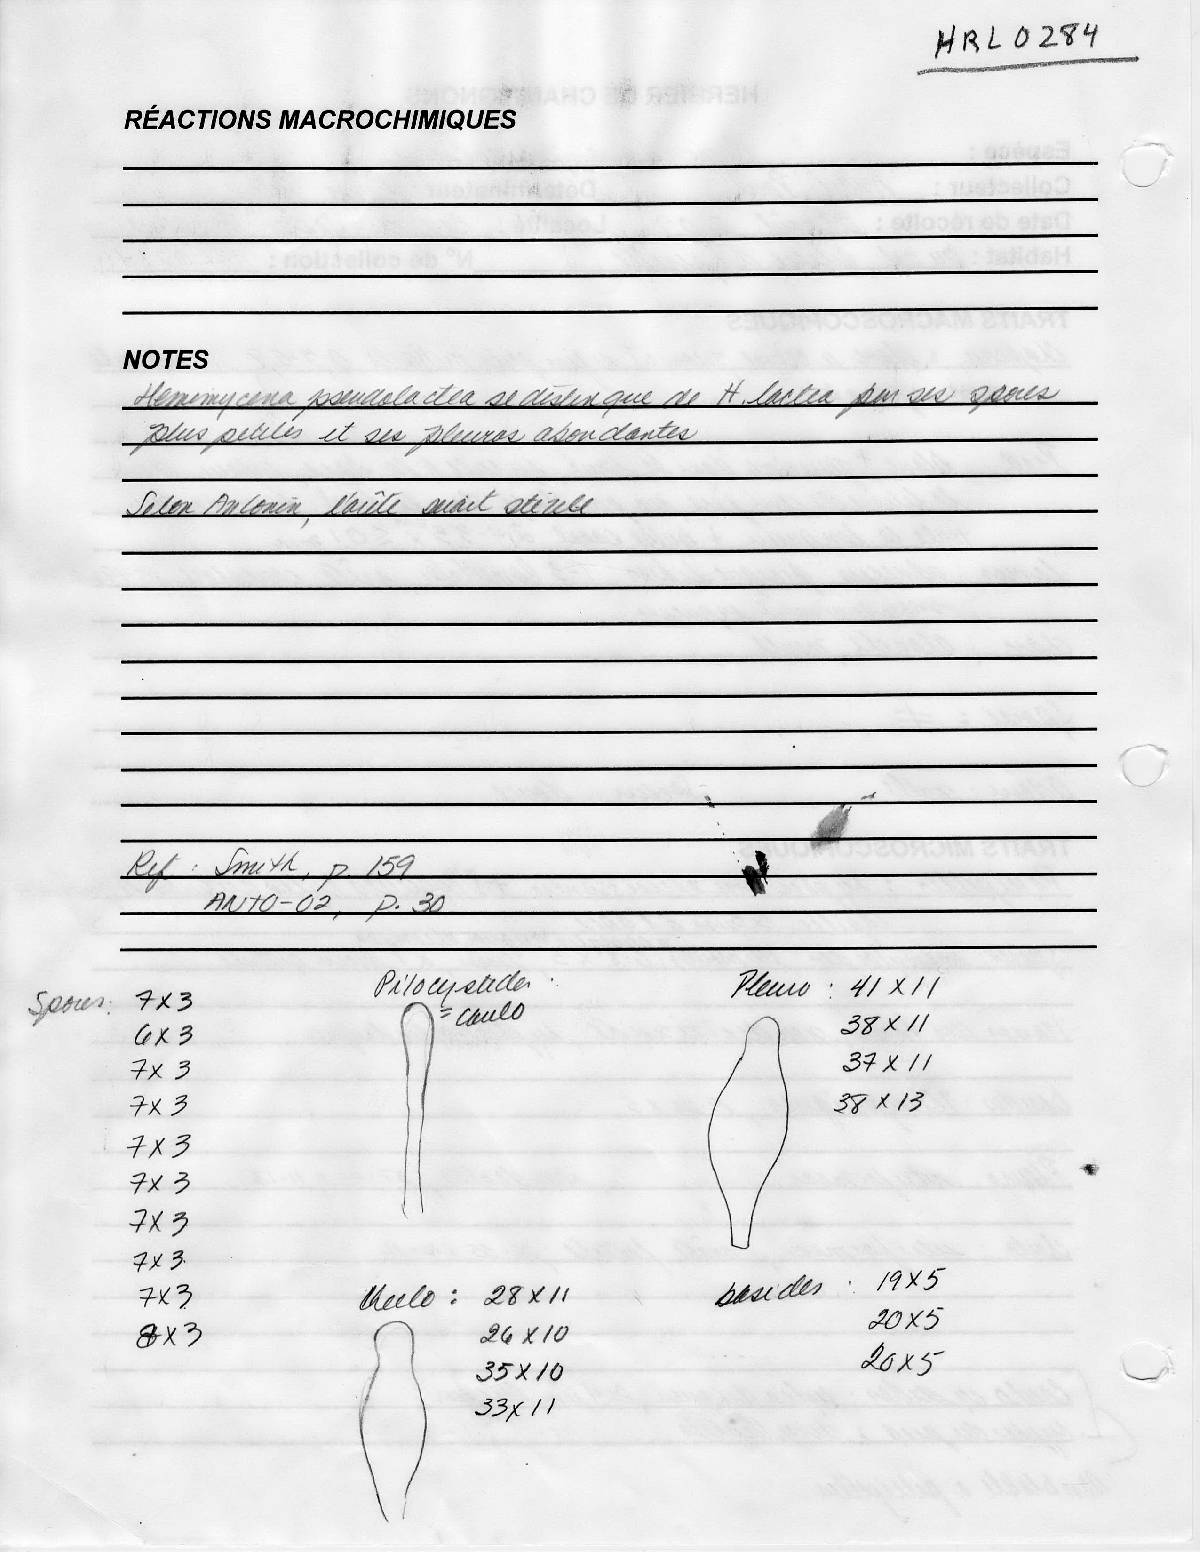 HRL0284
RÉACTIONS MACROCHIMIQUES
NOTES
Hemimycena pseudolactea se distingue de H. lactea par ses spores
plus petites et ses pleuros abondantes
Selon Antonin, l'arête serait stérile
Ref : Smith, p. 159
ANTO-02, p. 30
Spores: 7x3
6x3
7x3
7x3
7x3
7x3
7x3
7x3
7x3
8x3
Pilocystides :
= caulo
Pleuro : 41x11
38x11
37x11
38x13
Cheilo : 28x11
26x10
35x10
33x11
basides : 19x5
20x5
20x5